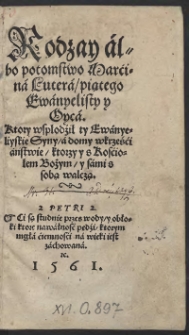 Rodzay ál-
bo potomstwo Marći-
ná Luterá/ piątego
Ewányelisty y
Oycá.
Ktory wspłodził ty Ewánye-
liyskie Syny/ á domy w krześći-
áństwie/ ktorzy y s Kośćio-
łem Bożym/ y sámi s
sobą walczą.
2 PETRI 2.
Ci są studnie przez wody/ y obło-
ki ktore nawáłność pędzi/ ktorym
mgłá ćiemnośći ná wieki iest
záchowána.
1561.
XVI.O.897